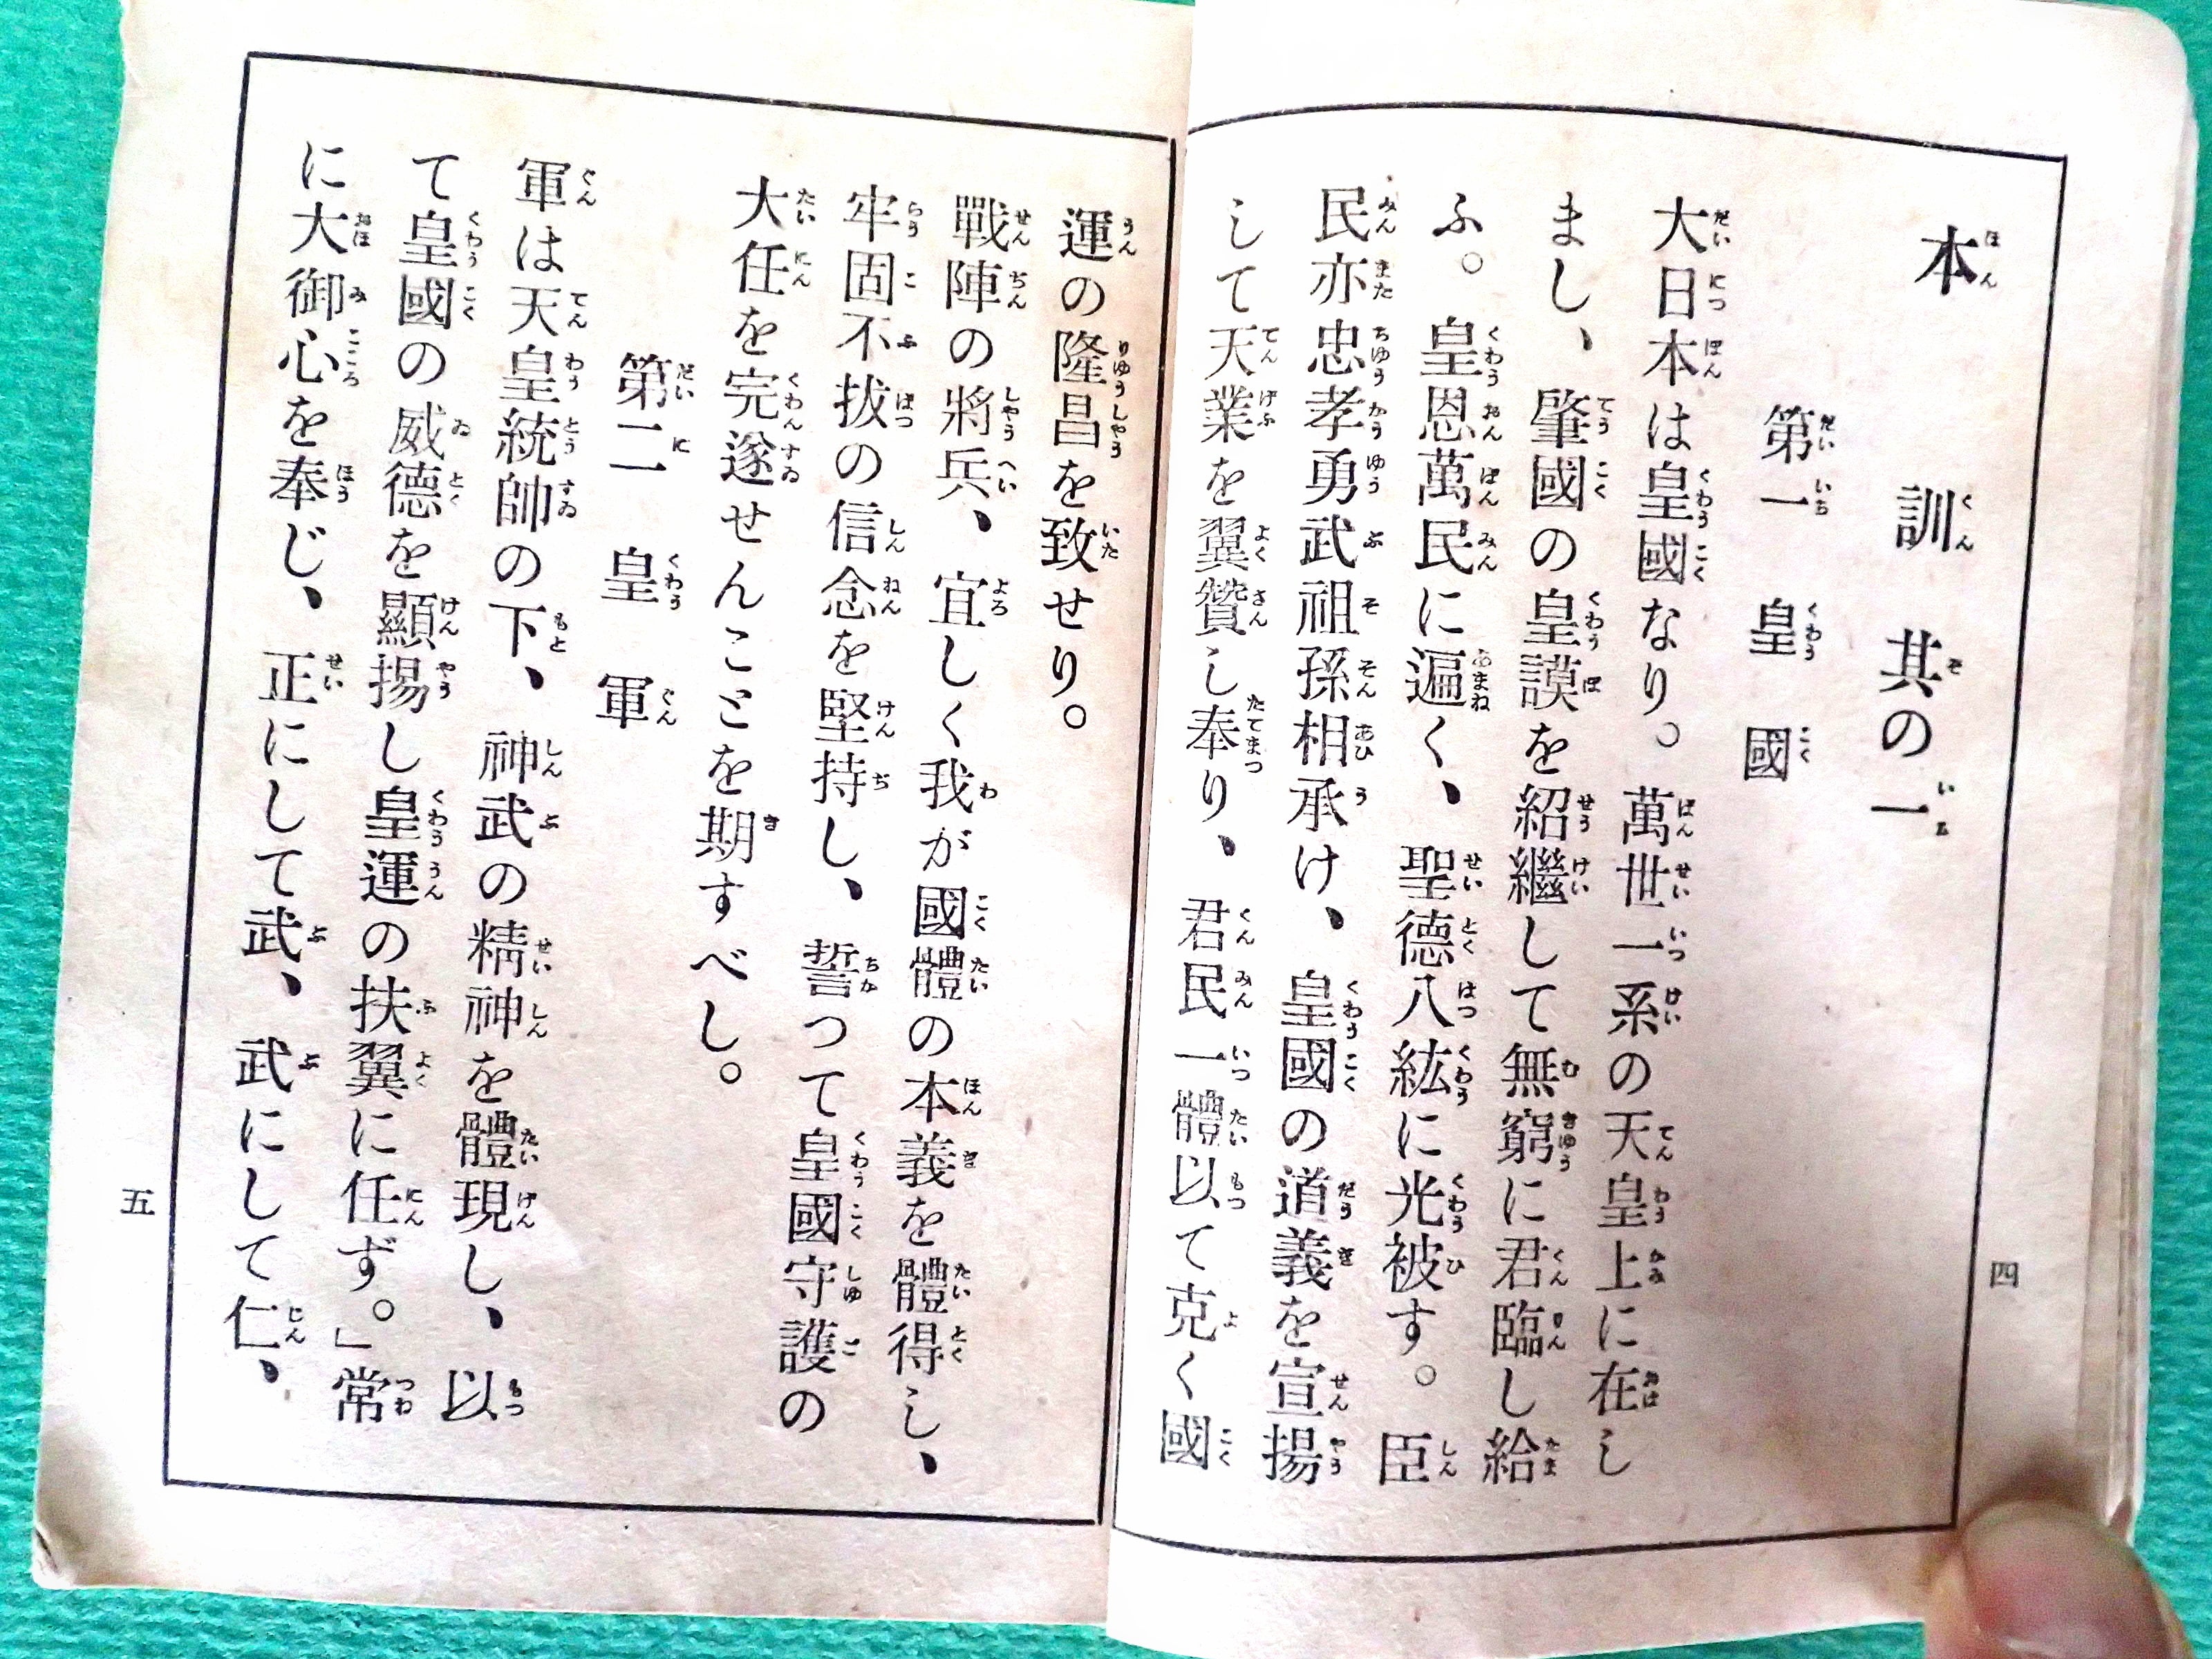 本訓 其の一
第一 皇國
大日本は皇國なり。萬世一系の天皇上に在し
まし、肇國の皇謨を紹繼して無窮に君臨し給
ふ。皇恩萬民に遍く、聖德八紘に光被す。臣
民亦忠孝勇武祖孫相承け、皇國の道義を宣揚
して天業を翼贊し奉り、君民一體以て克く國
四
運の隆昌を致せり。
戰陣の將兵、宜しく我が國體の本義を體得し、
牢固不拔の信念を堅持し、誓つて皇國守護の
大任を完遂せんことを期すべし。
第二 皇軍
軍は天皇統帥の下、神武の精神を體現し、以
て皇國の威德を顯揚し皇運の扶翼に任ず。」常
に大御心を奉じ、正にして武、武にして仁、
五